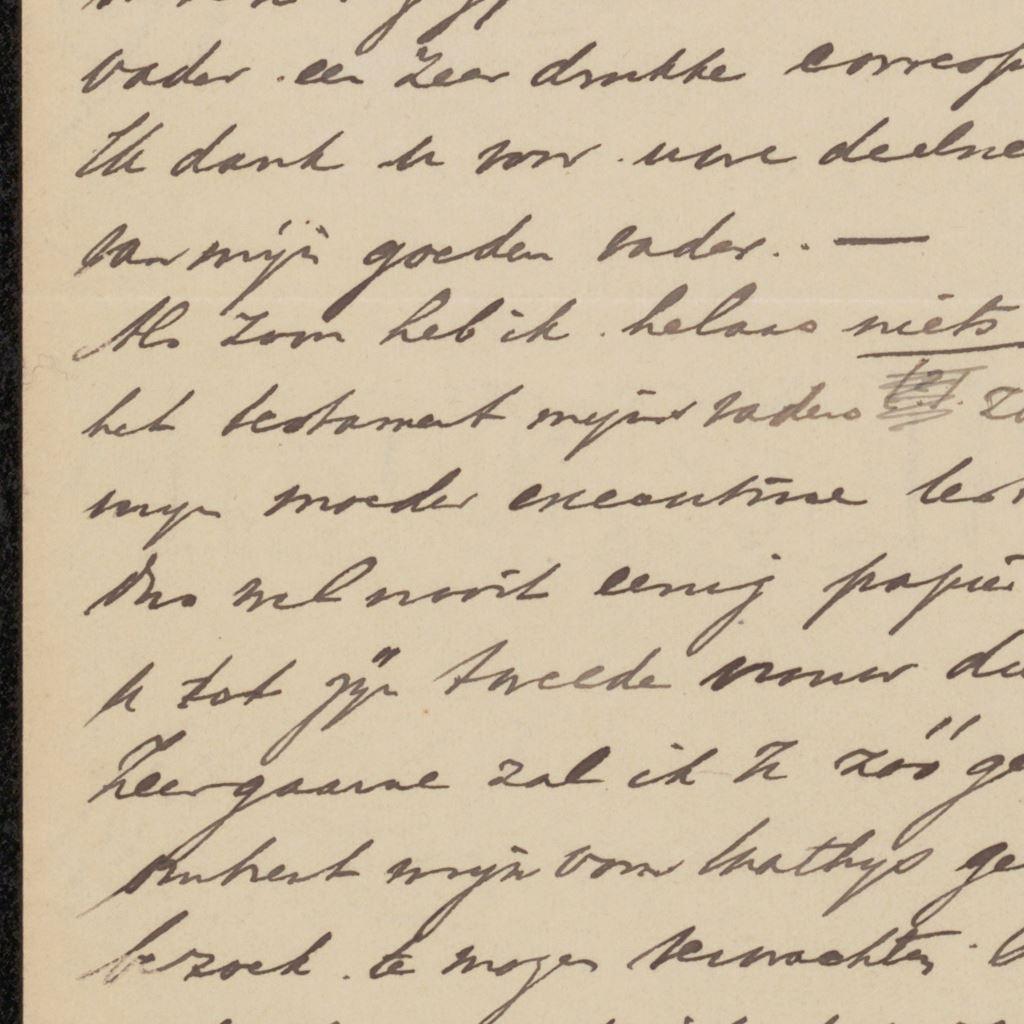 vader een zeer drukke corresp
Ik dank u voor uwe deelne
van mijn goeden vader. . —
Als zoon heb ik helaas niets
het testament mijns vaders zo
mijn moeder executrice test
dus wel nooit eenig papier
u tot zijn tweede vrouw die
Zeer gaarne zal ik U zóó ge
omtrent mijn oom Mathijs ge
bezoek te mogen verwachten.